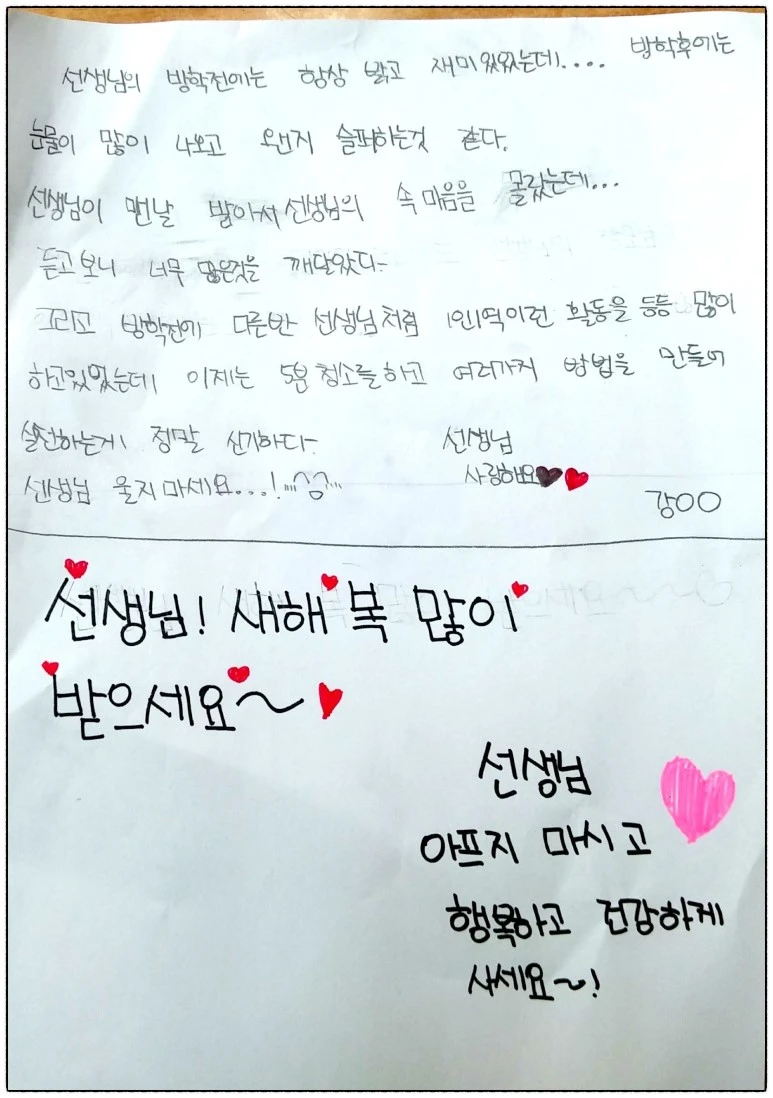 선생님의 방학전에는 항상 밝고 재미있었는데.... 방학후에는
눈물이 많이 나오고 왠지 슬퍼하는것 같다.
선생님이 맨날 밝아서 선생님의 속 마음을 몰랐는데...
듣고보니 너무 많은것을 깨달았다-
그리고 방학전에 다른반 선생님처럼 1인1역이런 활동을 등등 많이
하고있었는데 이제는 5분청소를하고 여러가지 방법을 만들어
실천하는게 정말 신기하다-
선생님 울지마세요...!
선생님
사랑해요
강○○
선생님! 새해 복 많이
받으세요~
선생님
아프지 마시고
행복하고 건강하게
사세요~!